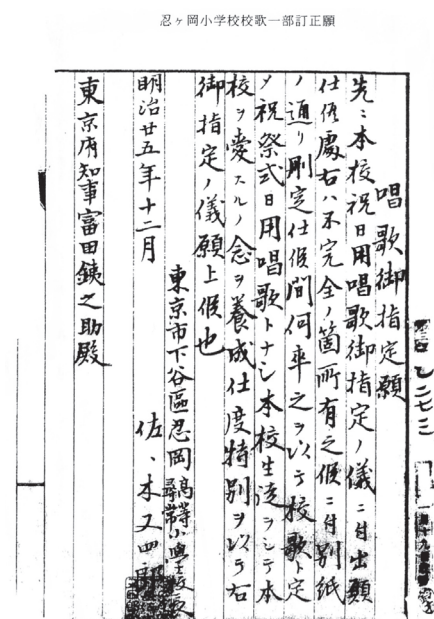 忍ヶ岡小学校校歌一部訂正願
唱歌御指定願
先ニ本校祝日用唱歌御指定ノ儀ニ付出願
仕候處右ハ不完全ノ箇所有之候ニ付別紙
ノ通リ刪定仕候間何卒之ヲ以テ校歌ト定
メ祝祭式日用唱歌トナシ本校生徒ヲシテ本
校ヲ愛スルノ念ヲ養成仕度特別ヲ以テ右
御指定ノ儀願上候也
東京市下谷區忍岡高等尋常小學校長
明治廿五年十二月
佐々木又四郎
東京府知事富田鉄之助殿
乙二七三